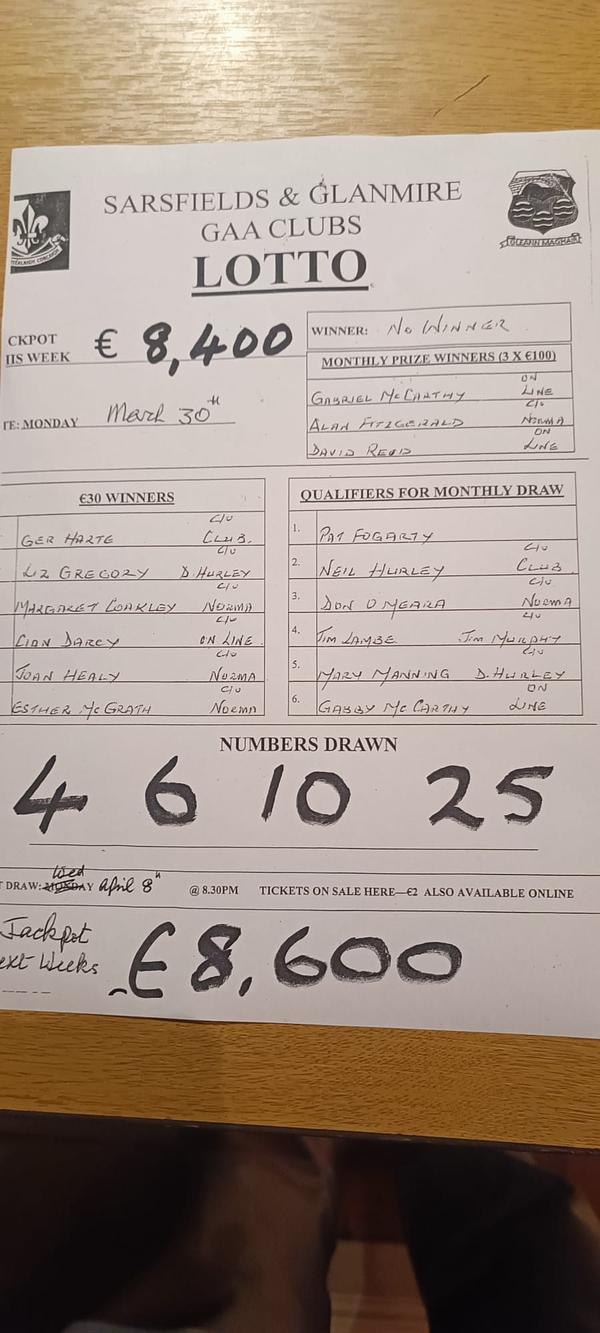 SARSFIELDS & GLANMIRE
GAA CLUBS
LOTTO
GLEANN MAGHAIR
CKPOT
IIS WEEK
€ 8,400
TE: MONDAY March 30th
WINNER: NO WINNER
MONTHLY PRIZE WINNERS (3 X €100)
GABRIEL MCCARTHY ON LINE
ALAN FITZGERALD C/O NORMA
DAVID REID ON LINE
€30 WINNERS
GER HARTE C/O CLUB.
LIZ GREGORY C/O D.HURLEY
MARGARET COAKLEY C/O NORMA
CIAN DARCY C/O ON LINE.
JOAN HEALY C/O NORMA
ESTHER MCGRATH C/O NORMA
QUALIFIERS FOR MONTHLY DRAW
1. PAT FOGARTY
2. NEIL HURLEY C/O CLUB
3. DON O MEARA C/O NORMA
4. TIM LAMBE C/O JIM MURPHY
5. MARY MANNING C/O D.HURLEY
6. GABBY MCCARTHY ON LINE
NUMBERS DRAWN
4 6 10 25
T DRAW: MONDAY Wed April 8th @ 8.30PM TICKETS ON SALE HERE—€2 ALSO AVAILABLE ONLINE
Jackpot
ext Weeks
€8,600